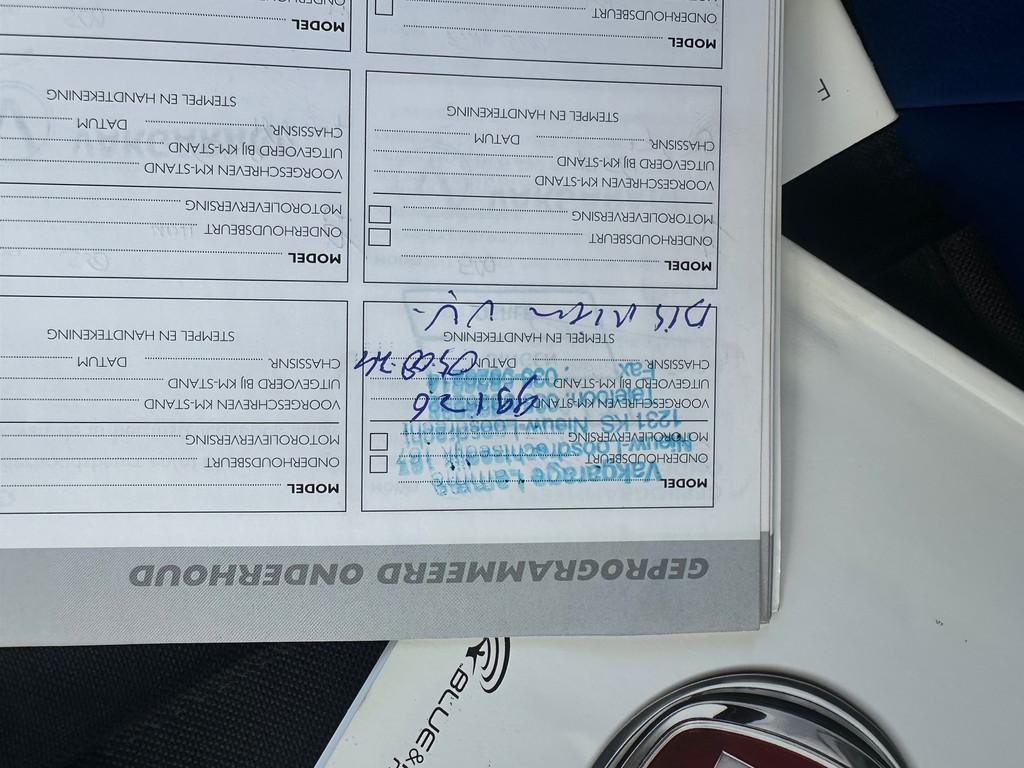 GEPROGRAMMEERD ONDERHOUD
MODEL
ONDERHOUDSBEURT
MOTOROLIEVERVERSING
VOORGESCHREVEN KM-STAND
UITGEVOERD BIJ KM-STAND
CHASSISNR. DATUM
STEMPEL EN HANDTEKENING
Vakgarage Lamme
Nieuw-Loosdrechtsedijk
1231 KS Nieuw-Loosdrecht
Telefoon
Fax
Dis riem V.V.
MODEL
ONDERHOUDSBEURT
MOTOROLIEVERVERSING
VOORGESCHREVEN KM-STAND
UITGEVOERD BIJ KM-STAND
CHASSISNR. DATUM
STEMPEL EN HANDTEKENING
MODEL
ONDERHOUDSBEURT
MOTOROLIEVERVERSING
VOORGESCHREVEN KM-STAND
UITGEVOERD BIJ KM-STAND
CHASSISNR. DATUM
STEMPEL EN HANDTEKENING
MODEL
ONDERHOUDSBEURT
MOTOROLIEVERVERSING
VOORGESCHREVEN KM-STAND
UITGEVOERD BIJ KM-STAND
CHASSISNR. DATUM
STEMPEL EN HANDTEKENING
MODEL
ONDERHOUDSBEURT
MODEL
BLUE&
F